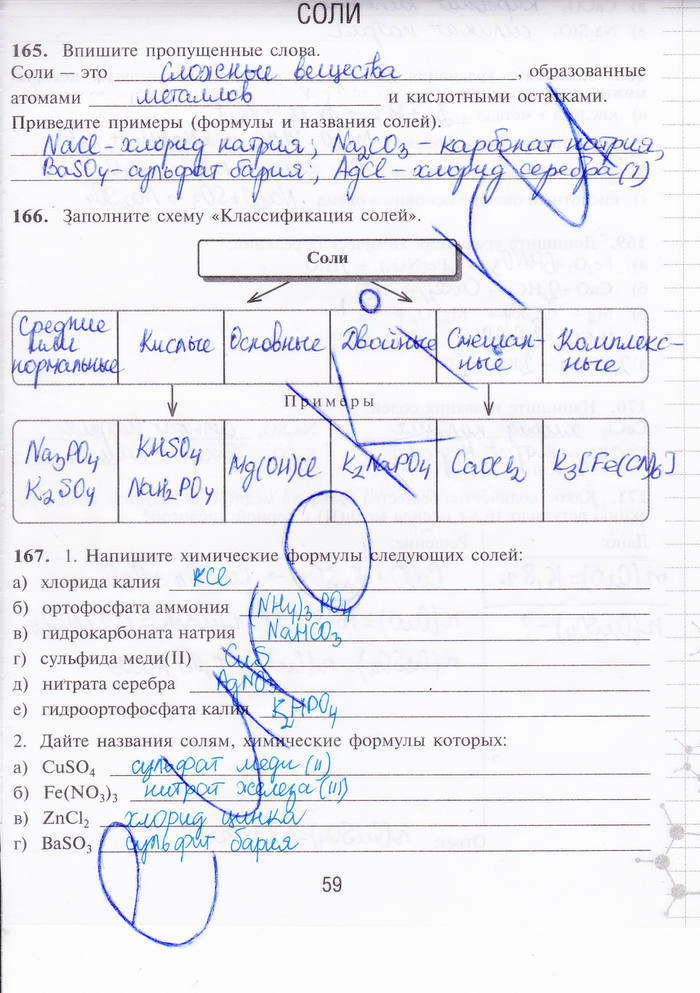 СОЛИ
165. Впишите пропущенные слова.
Соли — это сложные вещества, образованные
атомами металлов и кислотными остатками.
Приведите примеры (формулы и названия солей).
NaCl - хлорид натрия; Na2CO3 - карбонат натрия,
BaSO4 - сульфат бария; AgCl - хлорид серебра (I)
166. Заполните схему «Классификация солей».
Соли
Средние или нормальные Кислые Основные Двойные Смешан-ные Комплекс-ные
Примеры
Na3PO4 KHSO4 Mg(OH)Cl K2NaPO4 CaOCl2 K3[Fe(CN)6]
K2SO4 NaH2PO4
167. 1. Напишите химические формулы следующих солей:
а) хлорида калия KCl
б) ортофосфата аммония (NH4)3PO4
в) гидрокарбоната натрия NaHCO3
г) сульфида меди(II) CuS
д) нитрата серебра AgNO3
е) гидроортофосфата калия K2HPO4
2. Дайте названия солям, химические формулы которых:
а) CuSO4 сульфат меди (II)
б) Fe(NO3)3 нитрат железа (III)
в) ZnCl2 хлорид цинка
г) BaSO3 сульфит бария
59